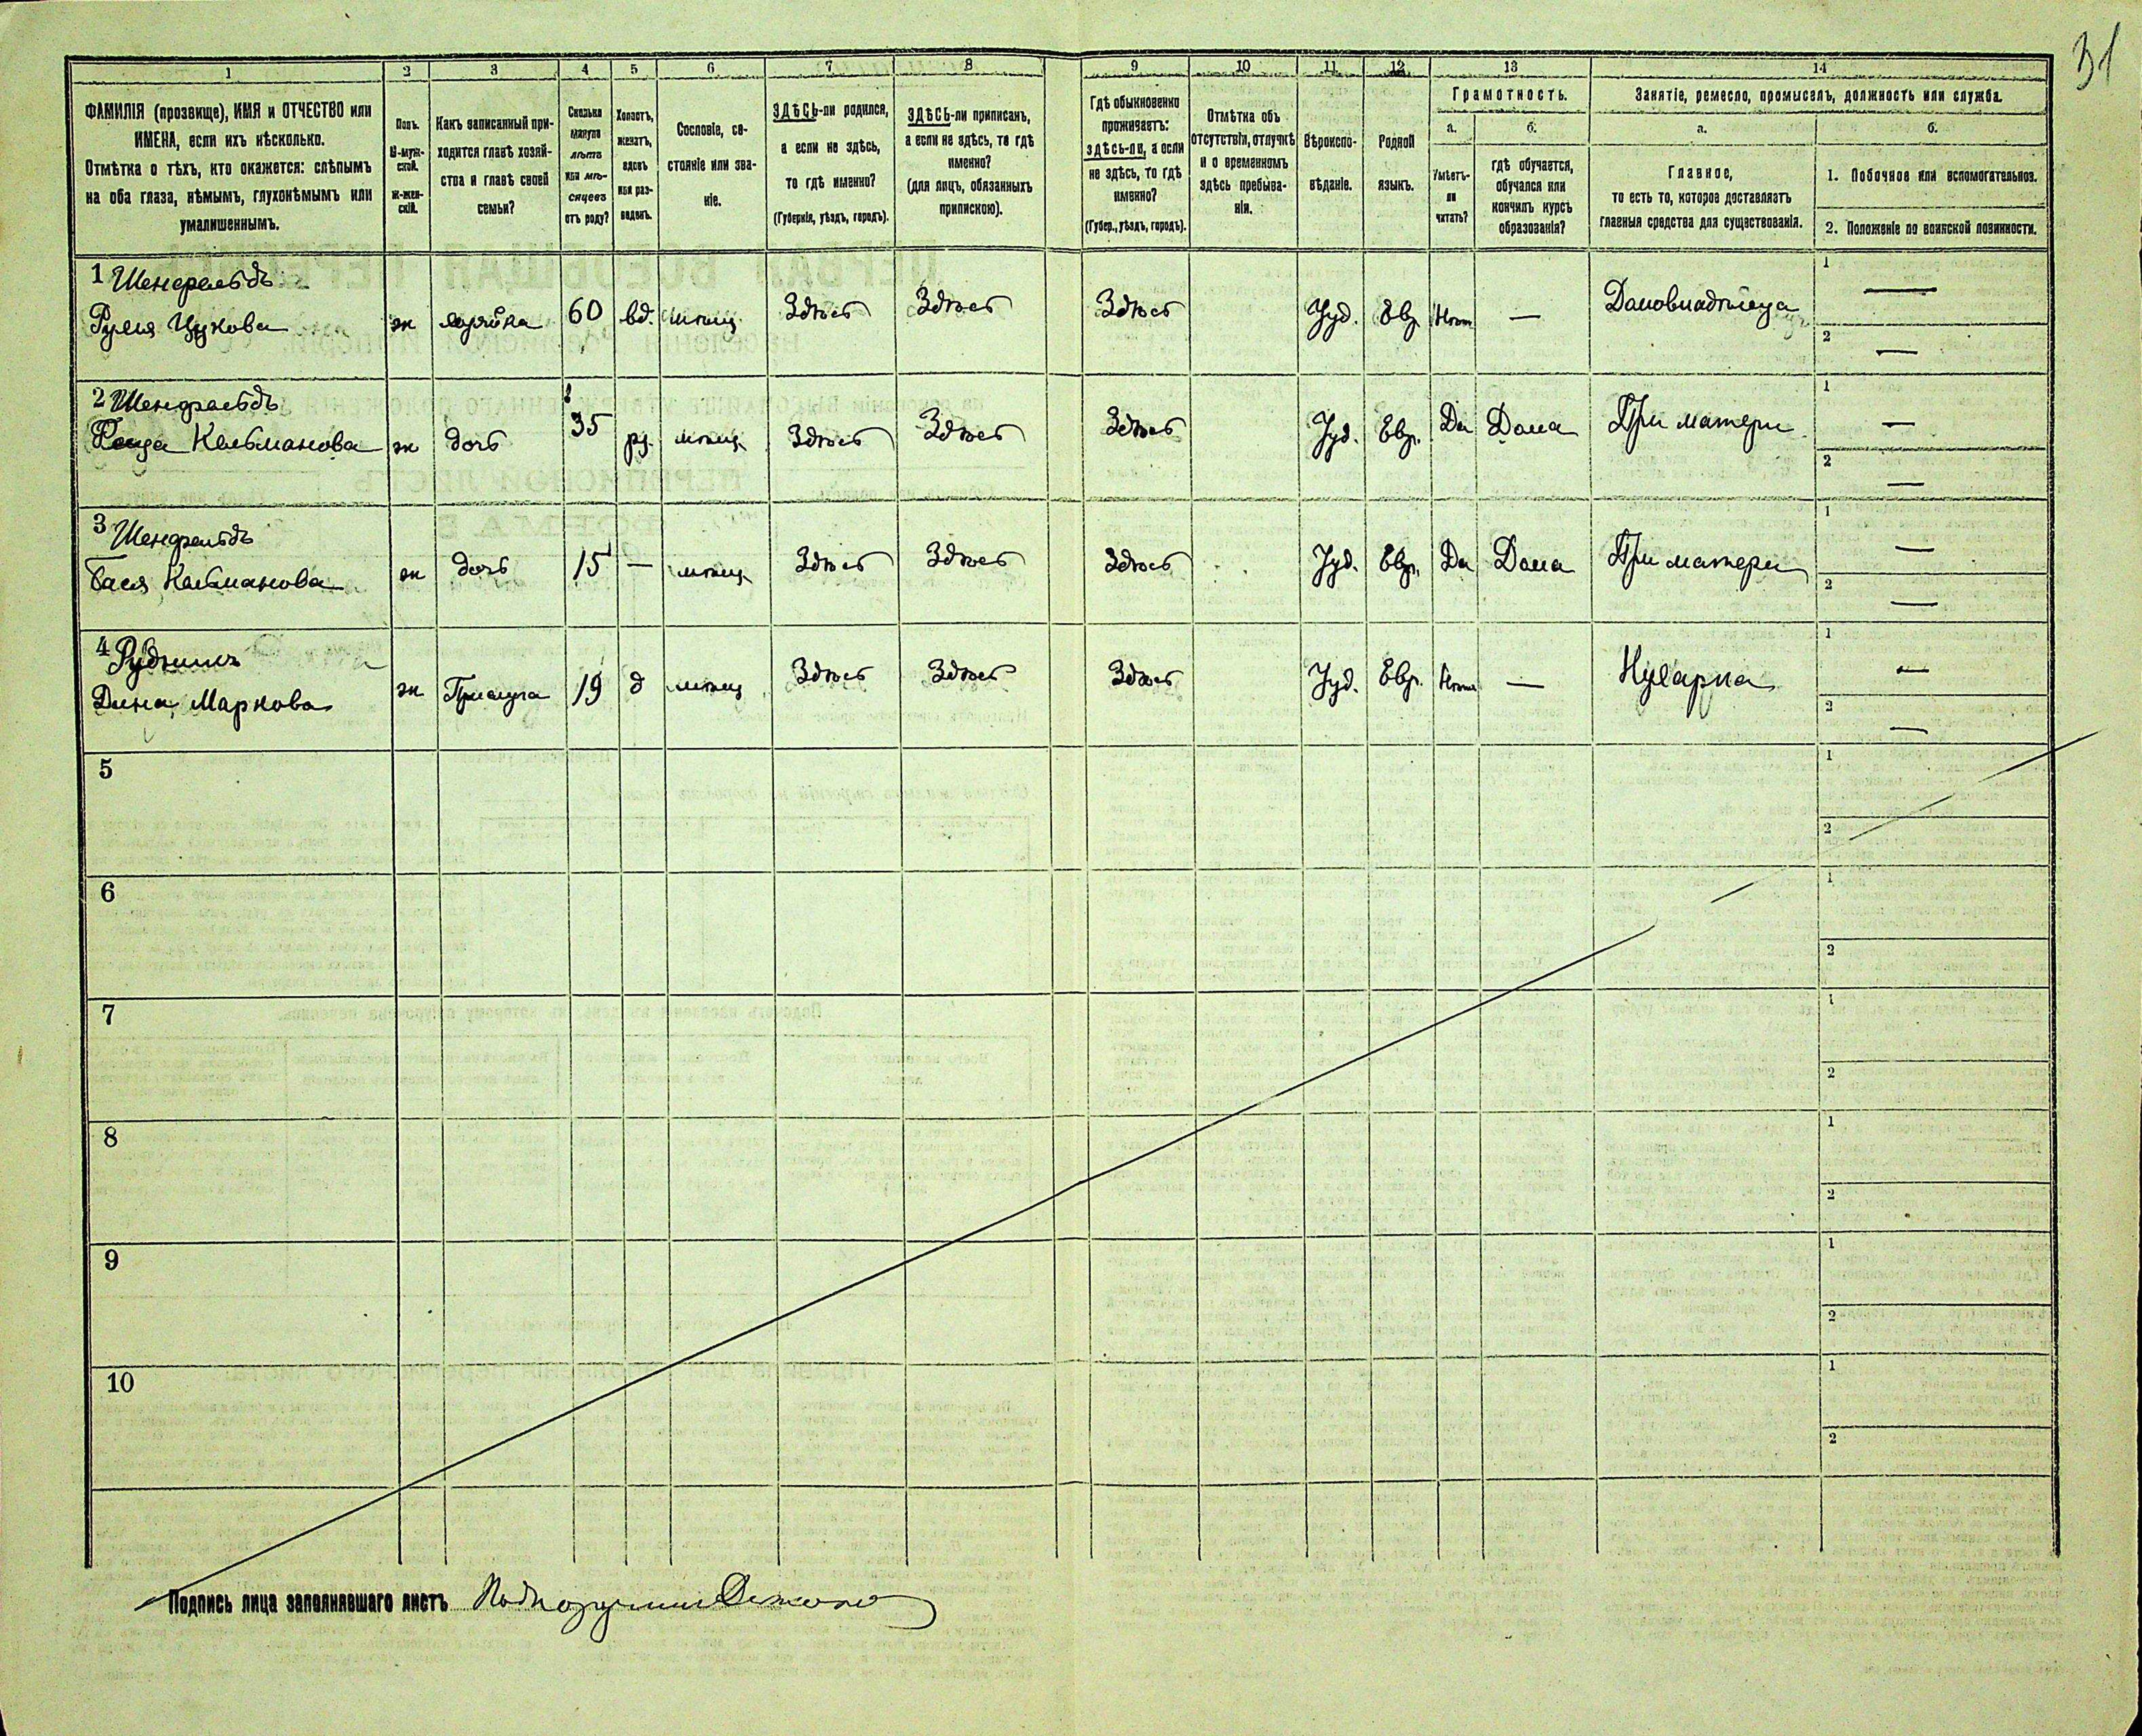 31
1 2 3 4 5 6 7 8 9 10 11 12 13 14
ФАМИЛІЯ (прозвище), ИМЯ и ОТЧЕСТВО или
ИМЕНА, если ихъ нѣсколько.
Отмѣтка о тѣхъ, кто окажется: слѣпымъ
на оба глаза, нѣмымъ, глухонѣмымъ или
умалишеннымъ.
Полъ.
М-муж-
ской.
Ж-жен-
скій.
Какъ записанный при-
ходится главѣ хозяй-
ства и главѣ своей
семьи?
Сколько
минуло
лѣтъ
или мѣ-
сяцевъ
отъ роду?
Холостъ,
женатъ,
вдовъ
или раз-
веденъ.
Сословіе, со-
стояніе или зва-
ніе.
ЗДѢСЬ-ли родился,
а если не здѣсь,
то гдѣ именно?
(Губернія, уѣздъ, городъ).
ЗДѢСЬ-ли приписанъ,
а если не здѣсь, то гдѣ
именно?
(для лицъ, обязанныхъ
припискою).
Гдѣ обыкновенно
проживаетъ:
здѣсь-ли, а если
не здѣсь, то гдѣ
именно?
(Губер., уѣздъ, городъ).
Отмѣтка объ
отсутствіи, отлучкѣ
и о временномъ
здѣсь пребыва-
ніи.
Вѣроиспо-
вѣданіе.
Родной
языкъ.
Грамотность.
а.
Умѣетъ-
ли
читать?
б.
гдѣ обучается,
обучался или
кончилъ курсъ
образованія?
Занятіе, ремесло, промыселъ, должность или служба.
а.
Главное,
то есть то, которое доставляетъ
главныя средства для существованія.
б.
1. Побочное или вспомогательное.
2. Положеніе по воинской повинности.
1 Шенфельдъ
Цукова ж хозяйка 60 вд. мѣщ Здѣсь Здѣсь Здѣсь Іуд. Евр Нѣтъ — Домовладѣлица 1 — 2 —
2 Шенфельдъ
Кельманова ж дочь 35 мѣщ Здѣсь Здѣсь Здѣсь Іуд. Евр. Да Дома При матери 1 — 2 —
3 Шенфельдъ
Бася Кельманова ж дочь 15 — мѣщ Здѣсь Здѣсь Здѣсь Іуд. Евр. Да Дома При матери 1 — 2 —
4 Рудникъ
Дина Маркова ж Прислуга 19 д мѣщ Здѣсь Здѣсь Здѣсь Іуд. Евр. Нѣтъ — Кухарка 1 — 2 —
5 1 2
6 1 2
7 1 2
8 1 2
9 1 2
10 1 2
Подпись лица заполнявшаго листъ